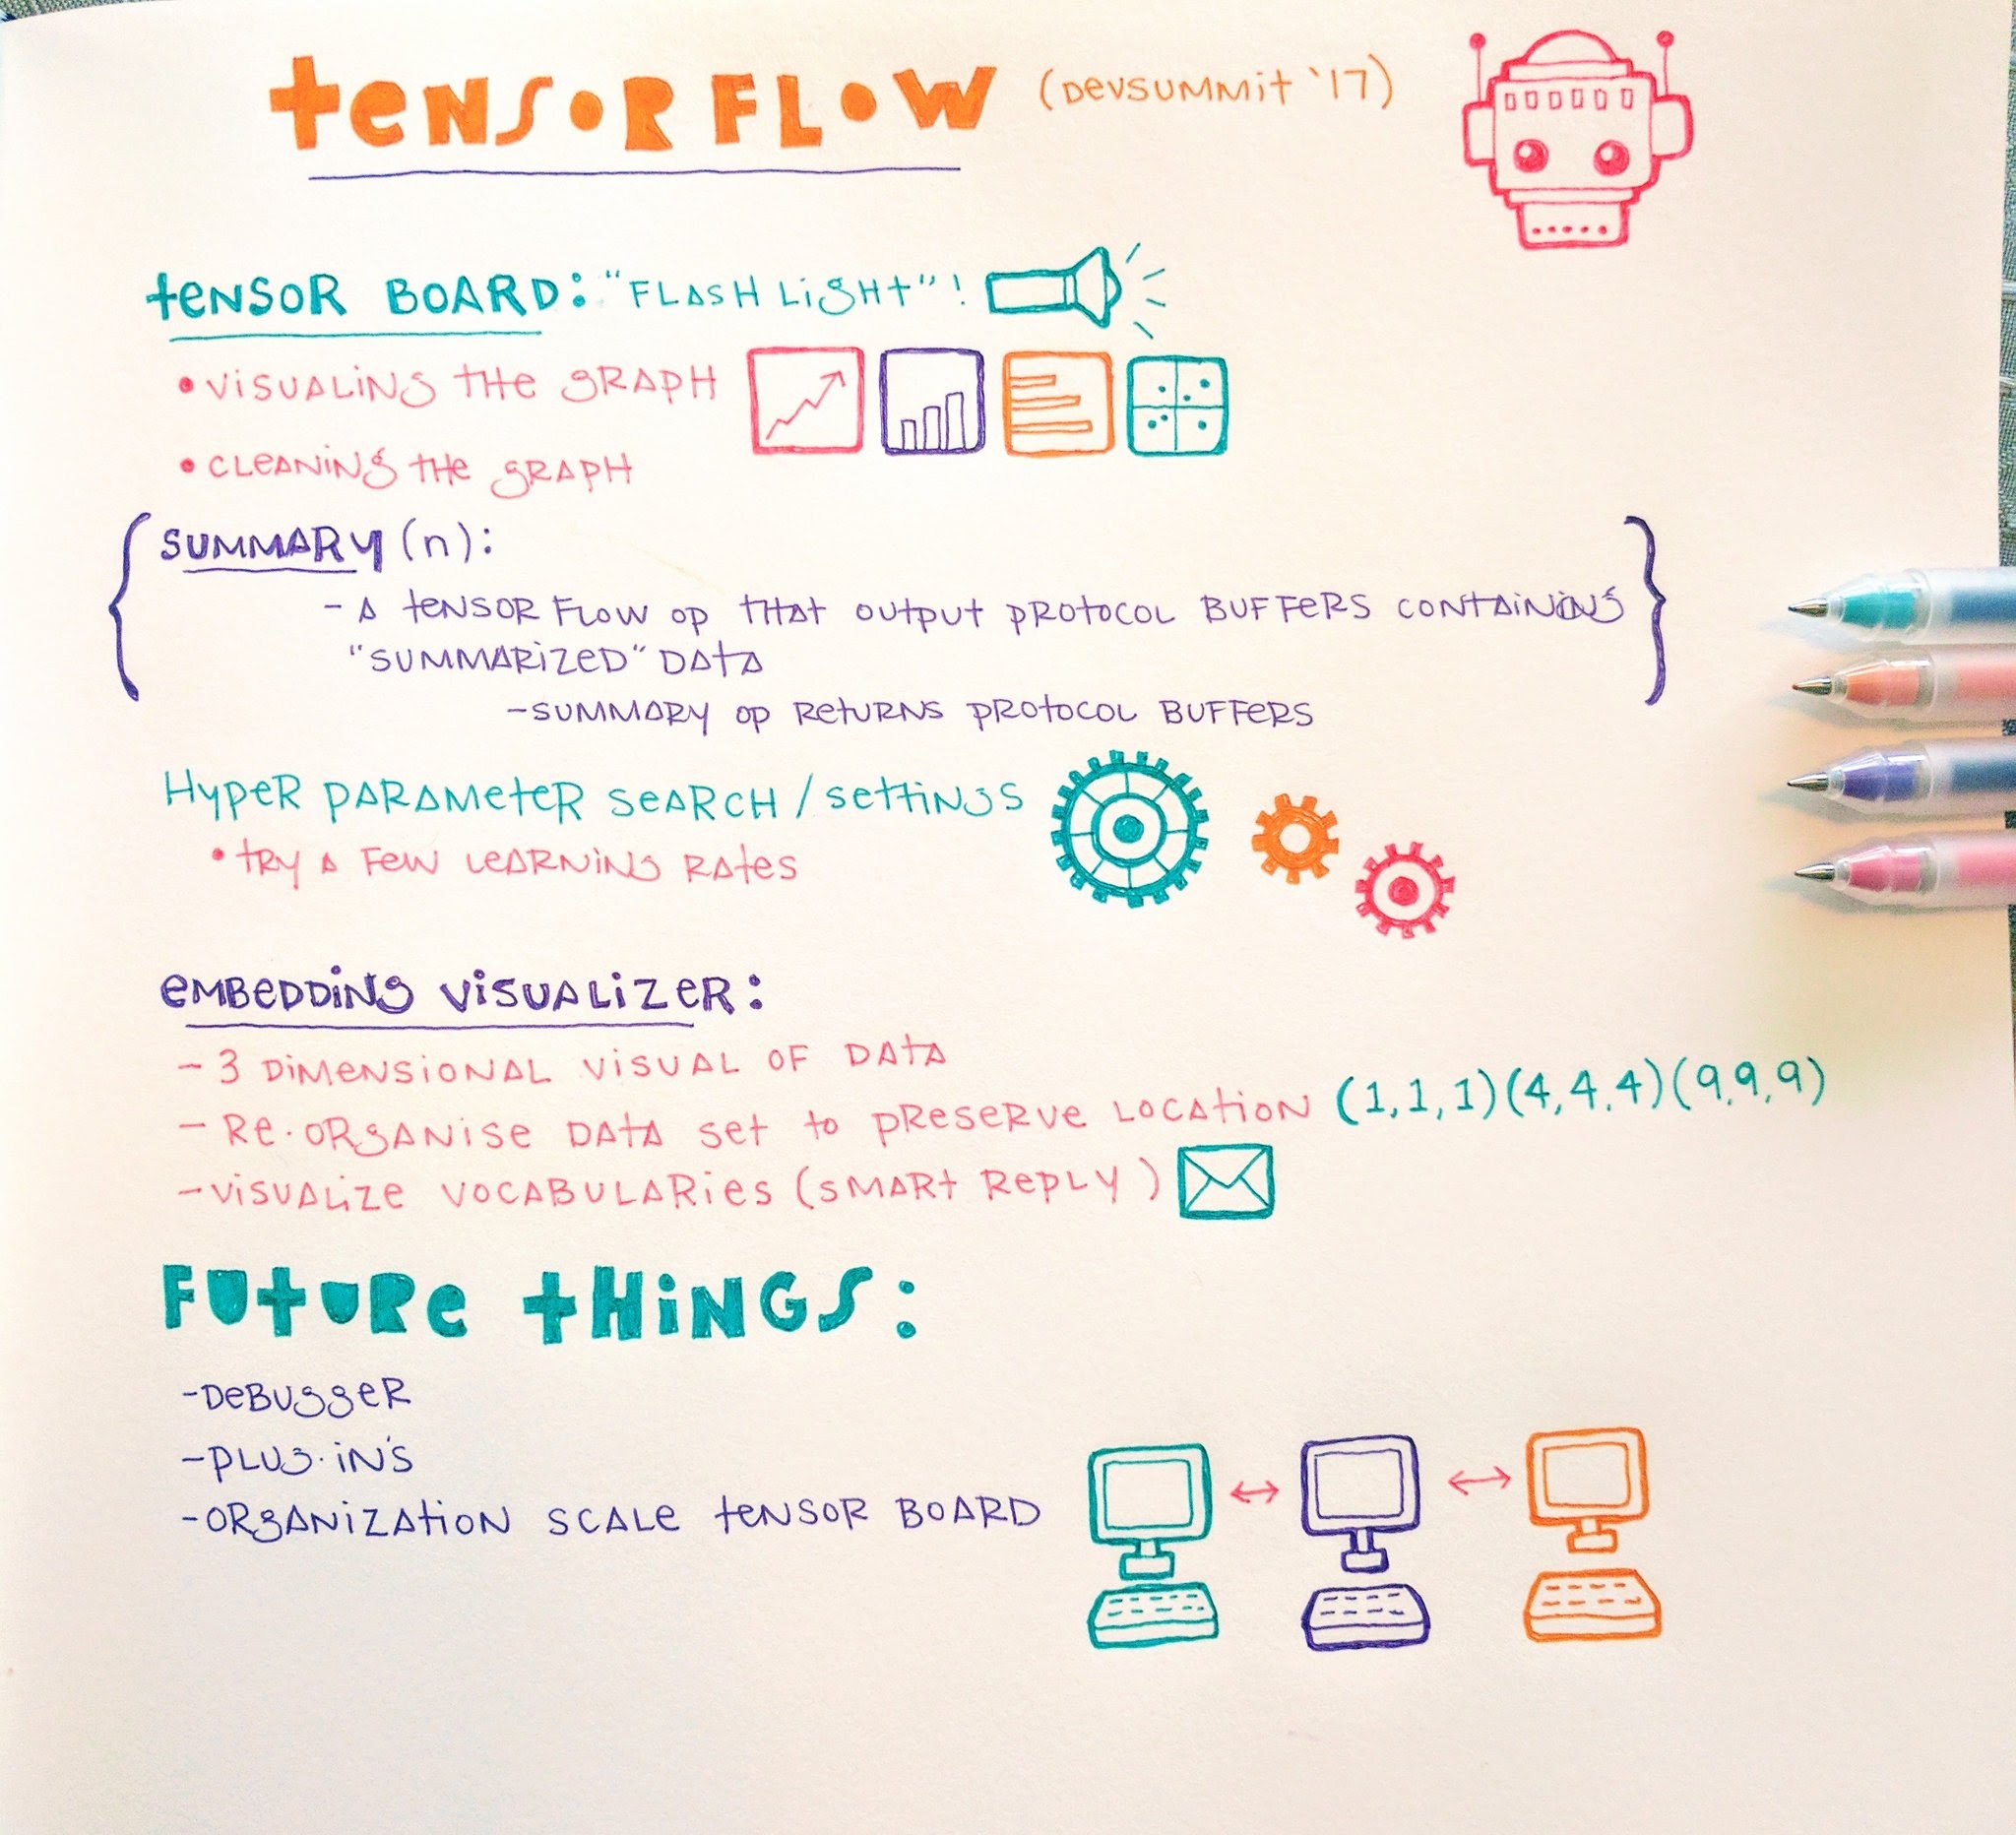 tensorflow (Devsummit '17)
tensor board: "Flash Light"!
• Visualing the graph
• Cleaning the graph
Summary (n):
- A tensor flow op that output protocol buffers containing
"summarized" data
- summary op returns protocol buffers
Hyper parameter search / settings
• try a few learning rates
embedding visualizer:
- 3 dimensional visual of data
- Re-organise data set to preserve location (1,1,1) (4,4,4) (9,9,9)
- visualize vocabularies (smart reply)
Future things:
- Debugger
- Plug-in's
- Organization scale tensor board